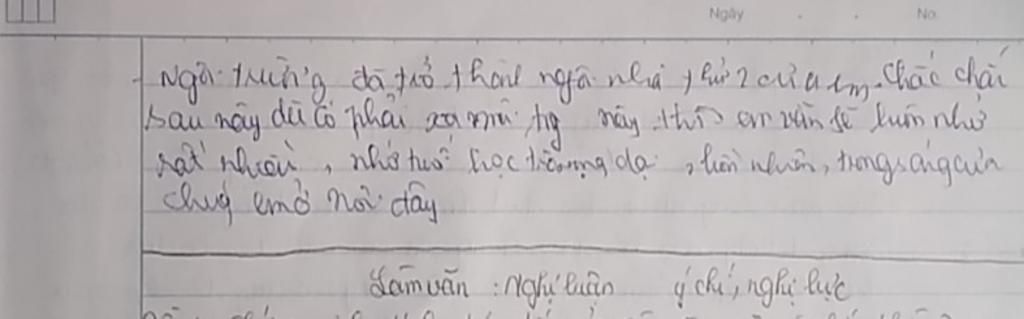 Ngày No.
Ngôi trường đã trở thành ngôi nhà thứ 2 của em. Chắc chắn
sau này dù có phải xa mái trg này thì em vẫn sẽ luôn nhớ
rất nhiều, nhớ tuổi học trò mơ , hồn nhiên, trong sáng của
chúng em ở nơi đây
Làm văn : Nghị luận ý chí, nghị lực